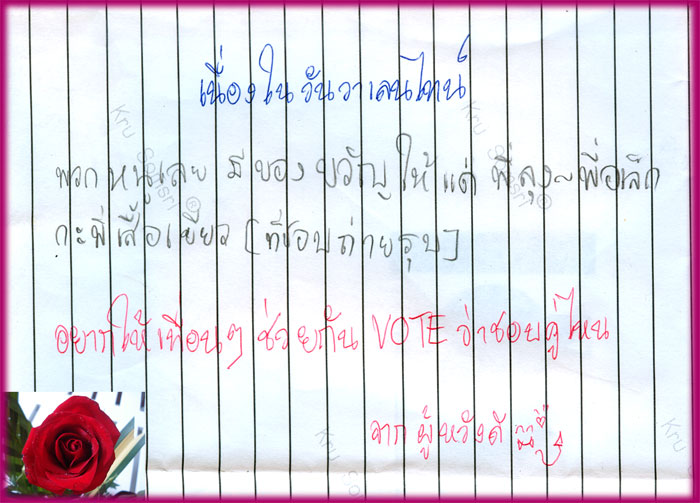 เนื่องในวันวาเลนไทน์
พวกหนูเลย มีของขวัญให้แด่ พี่ลุง~พี่อเล็ก
กะพี่เสื้อเขียว [ที่ชอบถ่ายรูป]
อยากให้เพื่อนๆ ช่วยกัน VOTE ว่าชอบคู่ไหน
จาก ผู้หวังดี
Kru Somsri ®
Kru
Kru